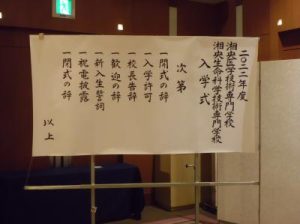 二〇二二年度
湘央医学技術専門学校
湘央生命科学技術専門学校
入学式
次第
一開式の辞
一入学許可
一校長告辞
一歓迎の辞
一新入生誓詞
一祝電披露
一閉式の辞
以上